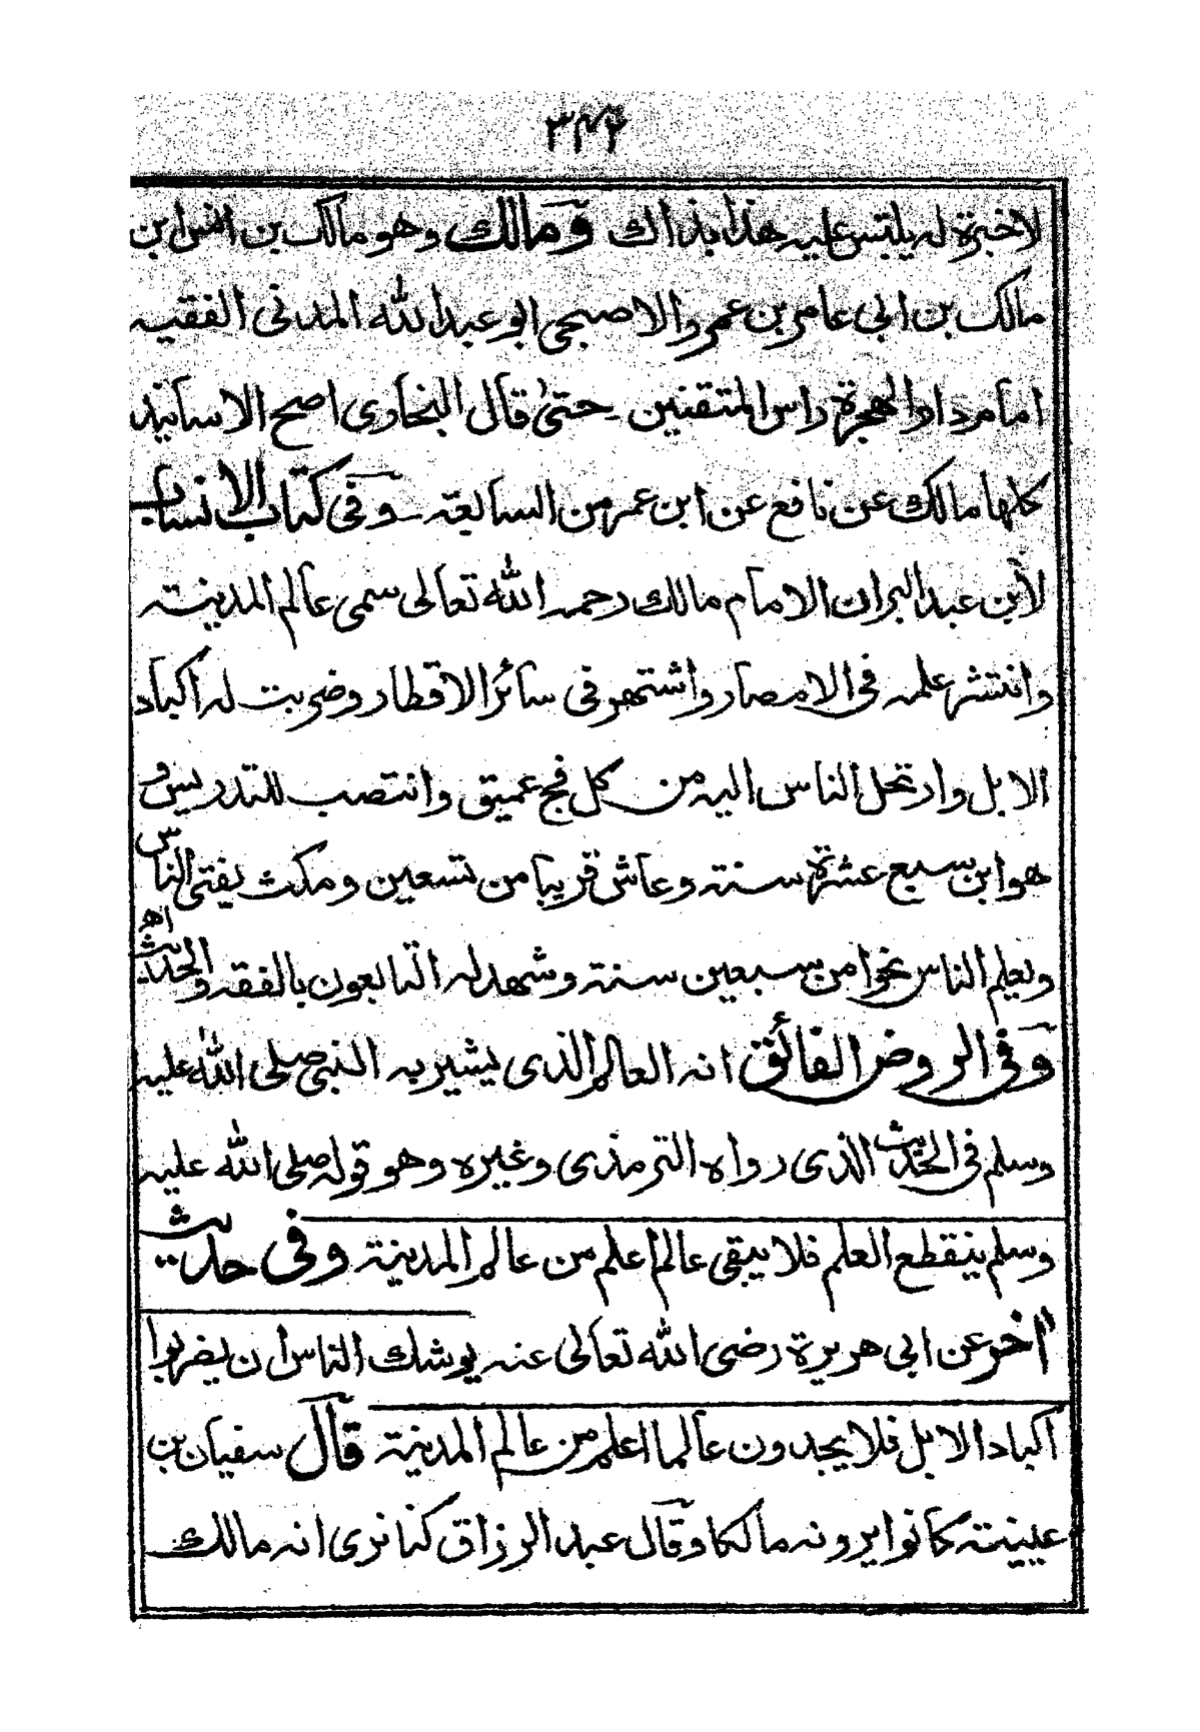 ٣٤٢
لاخبرة له يلتبس عليه هذا بذاك ومالك وهو مالك بن انس ابن
مالك بن ابي عامر بن عمرو الاصبحى ابو عبد الله المدنى الفقيه
امام دار الهجرة راس المتقنين حتى قال البخارى اصح الاسانيد
كلها مالك عن نافع عن ابن عمر من السابعة وفى كتاب الانساب
لأبن عبد البر ان الامام مالك رحمه الله تعالى سمى عالم المدينة
وانتشر علمه فى الامصار واشتهر فى سائر الاقطار وضربت له اكباد
الابل وارتحل الناس اليه من كل فج عميق وانتصب للتدريس و
هو ابن سبع عشرة سنة وعاش قريبا من تسعين ومكث يفتى الناس
ويعلم الناس نحوا من سبعين سنة وشهد له التابعون بالفقه والحديث اه
وفى الروض الفائق انه العالم الذى يشير به النبى صلى الله عليه
وسلم فى الحديث الذى رواه الترمذى وغيره وهو قوله صلى الله عليه
وسلم ينقطع العلم فلا يبقى عالم اعلم من عالم المدينة وفى حديث
اخر عن ابى هريرة رضى الله تعالى عنه يوشك الناس ان يضربوا
اكباد الابل فلا يجدون عالما اعلم من عالم المدينة قال سفيان بن
عيينة كانوا يرونه مالكا وقال عبد الرزاق كنا نرى انه مالك